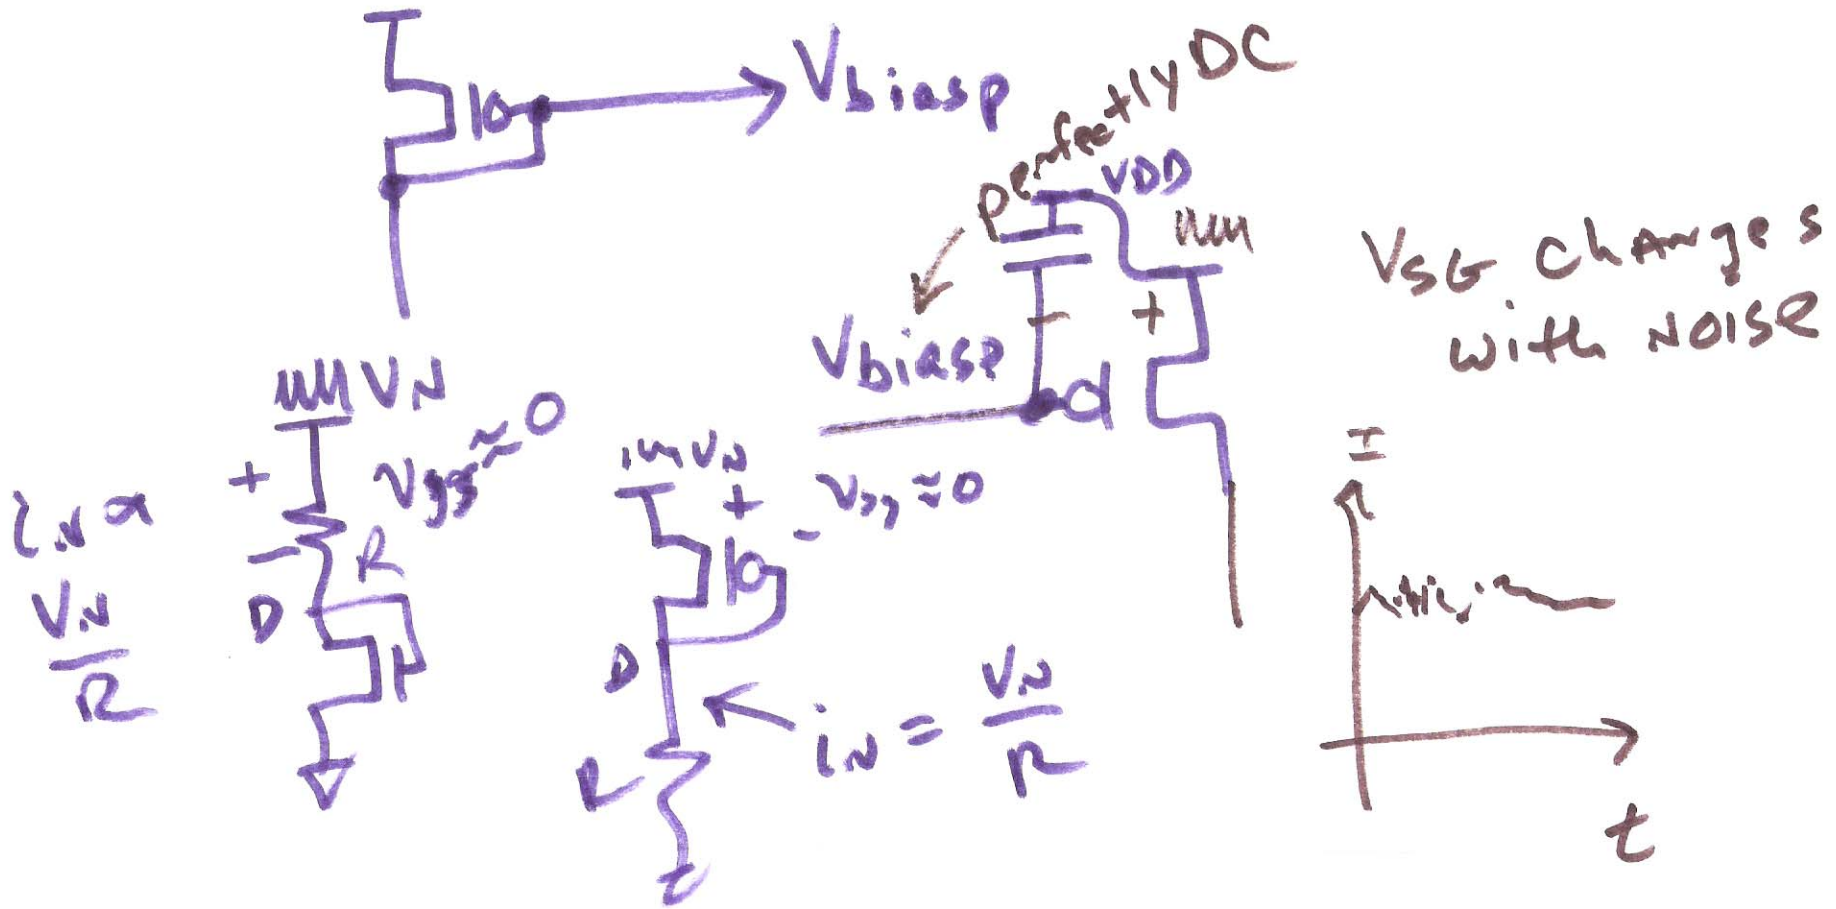 Vbiasp
perfectly DC
VDD
VSG changes
with Noise
Vbiasp
VN
vgg≈0
+
-
iN α
VN
R
R
D
VN
+
-
vgg≈0
D
R
iN = VN
R
+
-
I
t